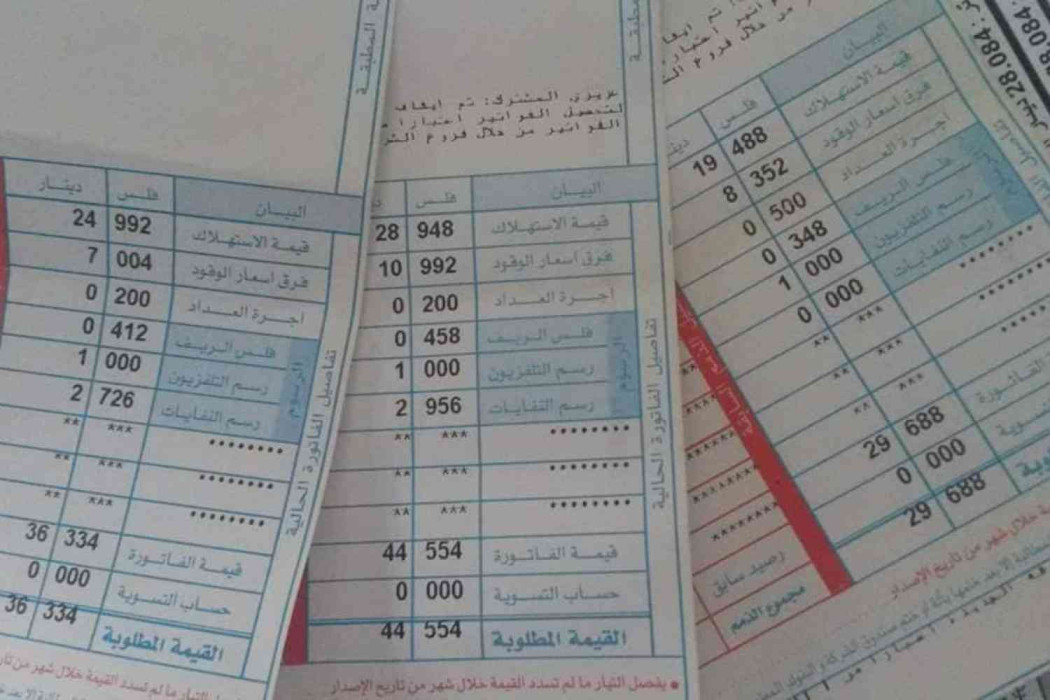 المطبقة
البيان فلس دينار
قيمة الاستهلاك 992 24
فرق اسعار الوقود 004 7
اجرة العداد 200 0
الرسوم
فلس الريف 412 0
رسم التلفزيون 000 1
رسم النفايات 726 2
•••••••• *** **
•••••••• *** **
•••••••• *** **
قيمة الفاتورة 334 36
حساب التسوية 000 0
القيمة المطلوبة 334 36
تفاصيل الفاتورة الحالية
التيار ما لم تسدد القيمة خلال شهر من
عزيزي المشترك: تم ايقاف
لتحصيل الفواتير اعتبارا
الفواتير من خلال فروع
البيان فلس
قيمة الاستهلاك 948 28
فرق اسعار الوقود 992 10
اجرة العداد 200 0
الرسوم
فلس الريف 458 0
رسم التلفزيون 000 1
رسم النفايات 956 2
•••••••• *** **
•••••••• *** **
•••••••• *** **
قيمة الفاتورة 554 44
حساب التسوية 000 0
القيمة المطلوبة 554 44
تفاصيل الفاتورة الحالية
• يفصل التيار ما لم تسدد القيمة خلال شهر من تاريخ الإصدار
تم ايقا
من خلال فروع
28.084
البيان فلس
قيمة الاستهلاك 488 19
فرق اسعار الوقود 352 8
اجرة العداد 500 0
فلس الريف 348 0
رسم التلفزيون 000 1
رسم النفايات 000 0
*** **
*** **
*** **
الفاتورة 688 29
000 0
688 29
رصيد سابق
مجموع الذمم
خلال شهر من تاريخ الإصدار